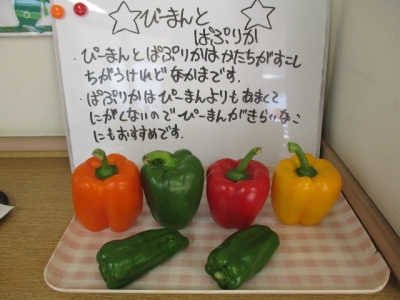 ぴーまんと
ぱぷりか
・ぴーまんとぱぷりかはかたちがすこし
ちがうけれどなかまです。
・ぱぷりかはぴーまんよりもあまくて
にがくないのでぴーまんがきらいなこ
にもおすすめです。